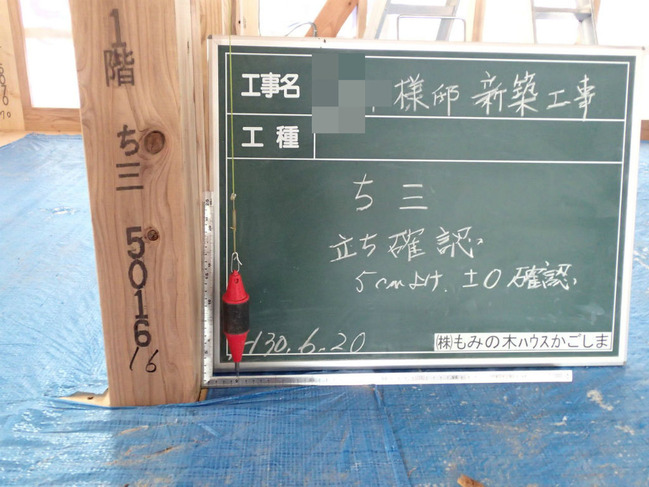 1
階
ち
三
5
0
1
6
16
工事名 様邸 新築工事
工種
ち 三
立ち確認
5cmよけ ±0 確認
H30.6.20
(株)もみの木ハウスかごしま